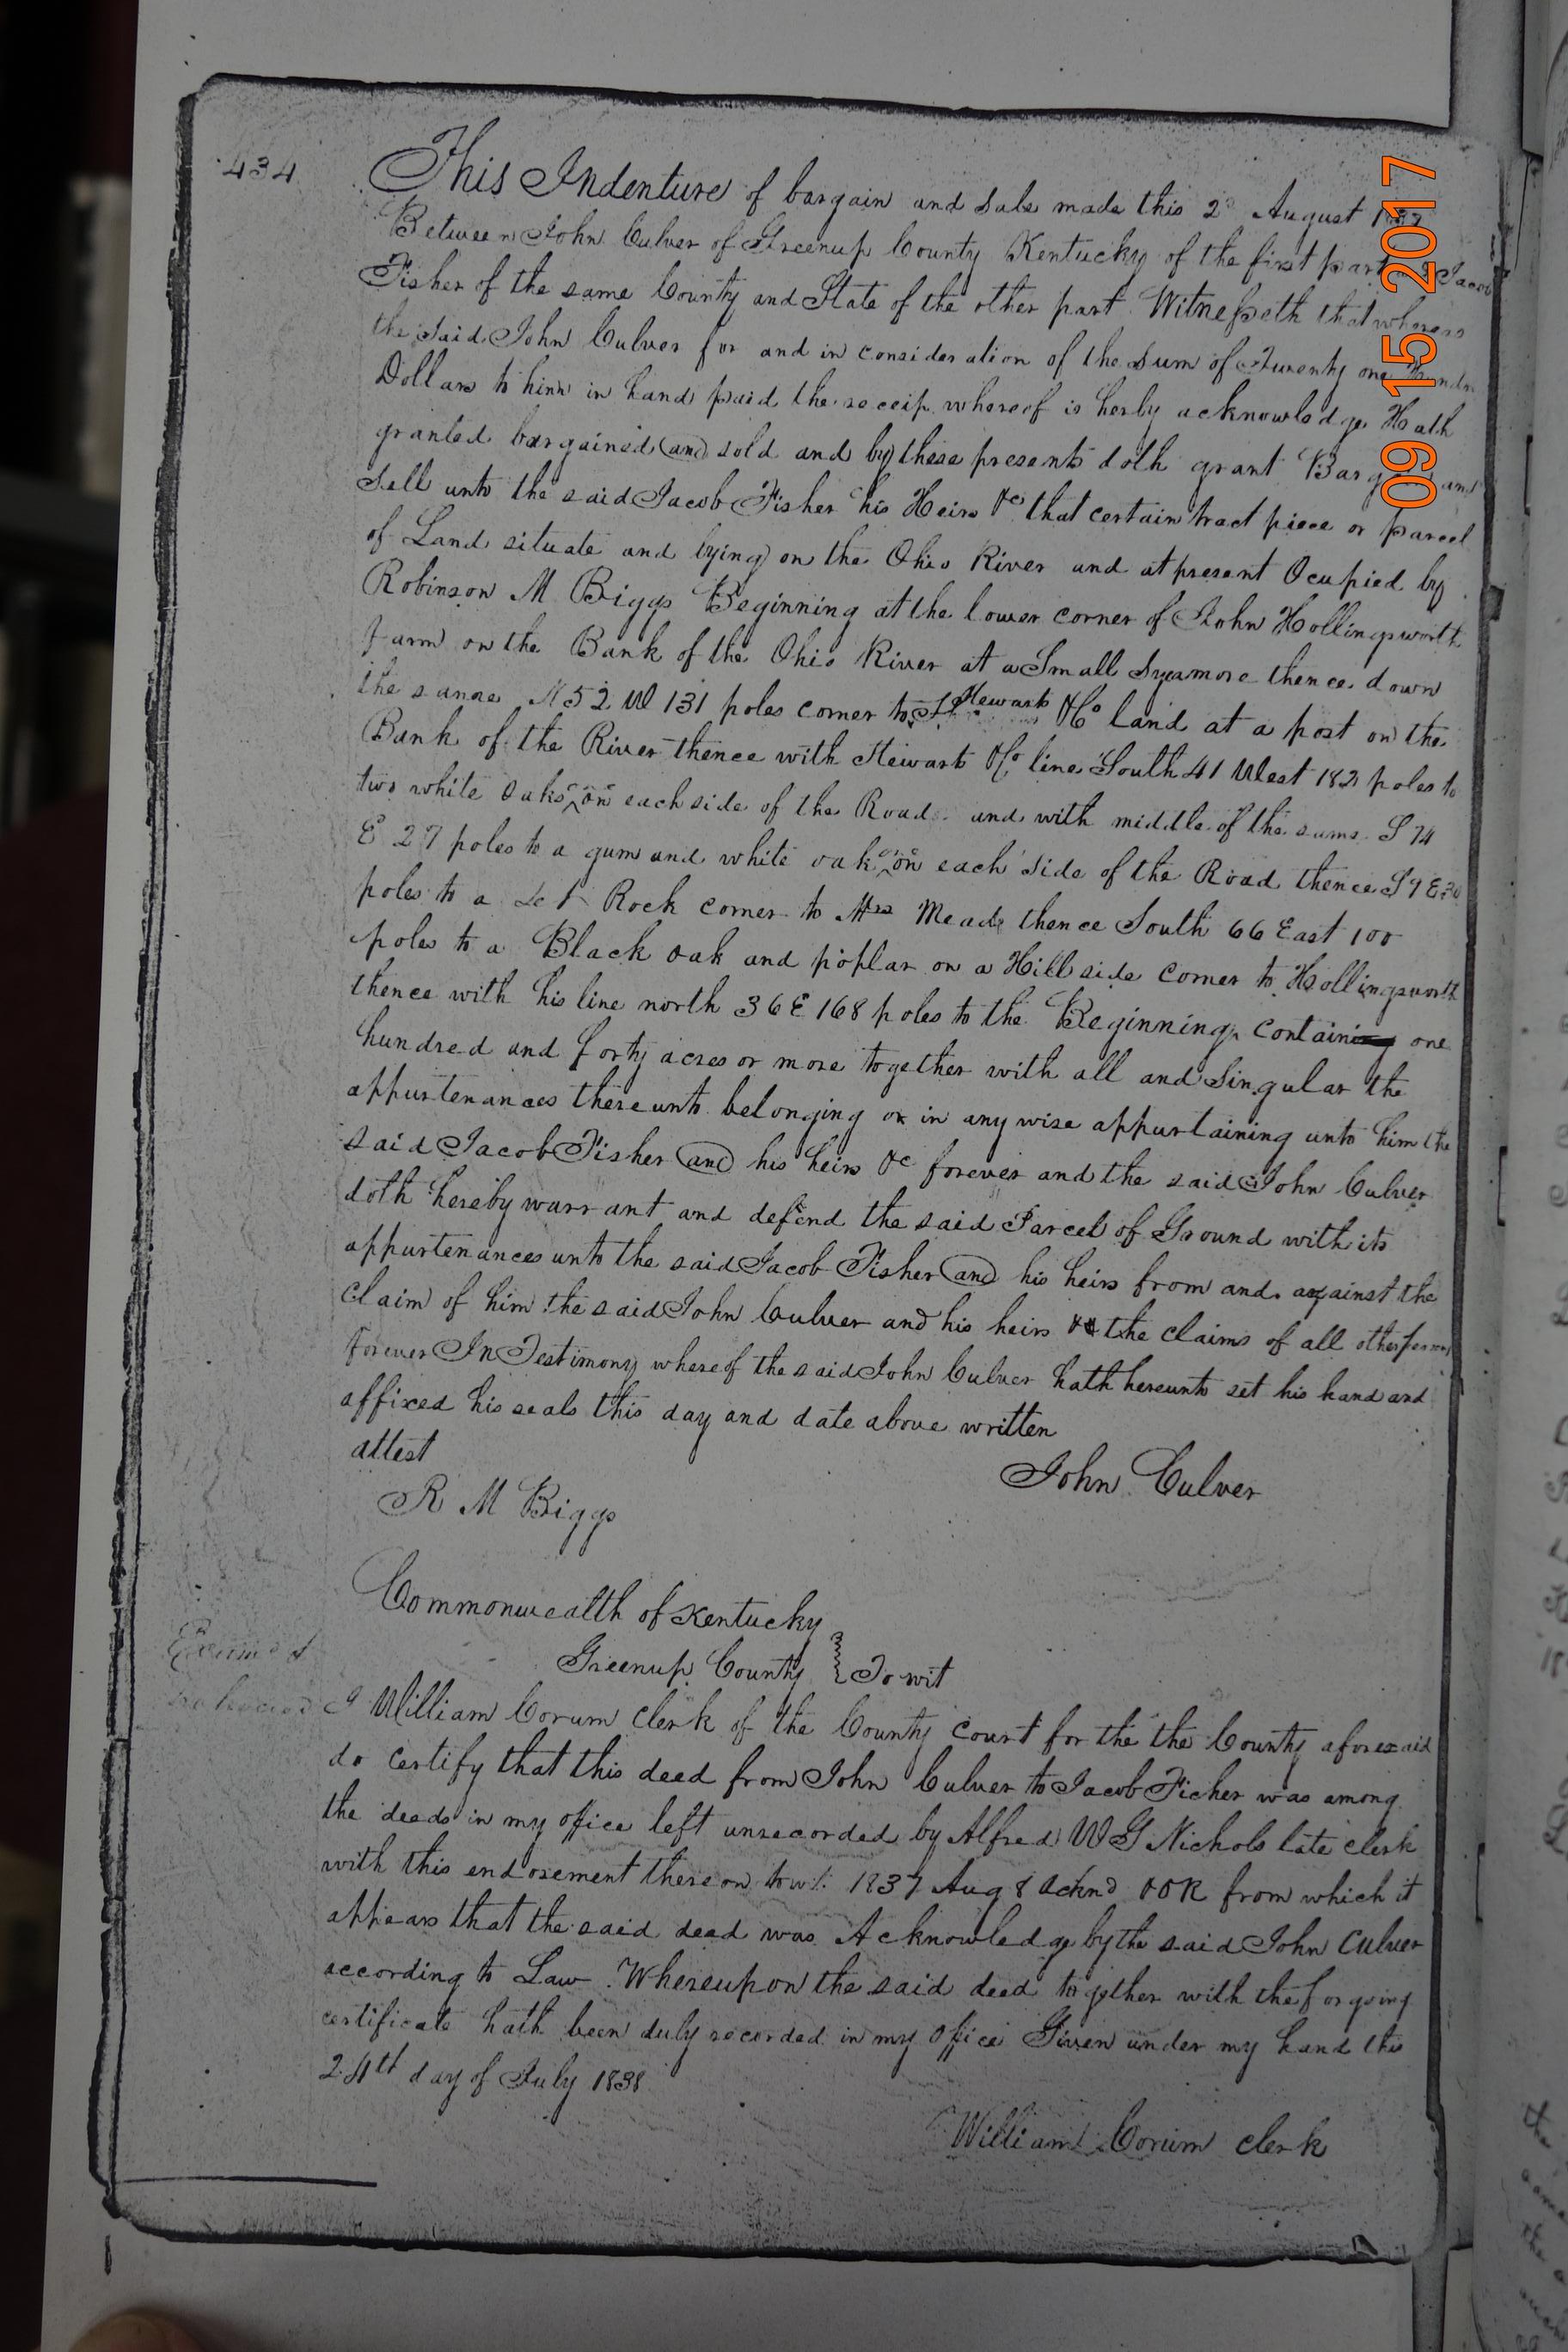 434
This Indenture of bargain and Sale made this 2d August
Between John Culver of Greenup County Kentucky of the first part & Jacob
Fisher of the same County and State of the other part Witnesseth that whereas
the said John Culver for and in consideration of the sum of Twenty one
Dollars to him in hand paid the receip whereof is herby acknowledge Hath
granted bargained and sold and by these presents doth grant Barg and
Sell unto the said Jacob Fisher his Heirs &c that certain tract piece or parcel
of Land situate and lying on the Ohio River and at present Ocupied by
Robinson M Biggs Beginning at the lower corner of John Hollingsworth
farm on the Bank of the Ohio River at a Small Sycamore thence down
the same N 52 W 131 poles corner to Stewarts &Co land at a post on the
Bank of the River thence with Stewarts &Co line South 41 West 182 poles to
two white oaks one on each side of the Road and with middle of the same S 74
E 27 poles to a gum and white oak one on each side of the Road thence S 9 E 30
poles to a Set Rock corner to Mrs Meads thence South 66 East 100
poles to a Black oak and poplar on a Hill side corner to Hollingsworth
thence with his line north 36 E 168 poles to the Beginning containing one
hundred and forty acres or more together with all and Singular the
appurtenances thereunto belonging or in any wise appurtaining unto him the
said Jacob Fisher and his heirs &c forever and the said John Culver
doth hereby warrant and defend the said Parcel of Ground with its
appurtenances unto the said Jacob Fisher and his heirs from and against the
Claim of him the said John Culver and his heirs & the claims of all other persons
forever In Testimony whereof the said John Culver hath hereunto set his hand and
affixed his seals this day and date above written
attest
John Culver
R M Biggs
Commonwealth of Kentucky
Greenup County } To wit
I William Corum Clerk of the County Court for the the County aforesaid
do certify that this deed from John Culver to Jacob Ficher was among
the deeds in my office left unrecorded by Alfred W G Nichols late clerk
with this endorsement thereon towit 1837 Aug 8 Acknd OOR from which it
appears that the said deed was Acknowledge by the said John Culver
according to Law Whereupon the said deed together with the forgoing
certificate hath been duly recorded in my office Given under my hand this
24th day of July 1838
William Corum clerk
09 15 2017